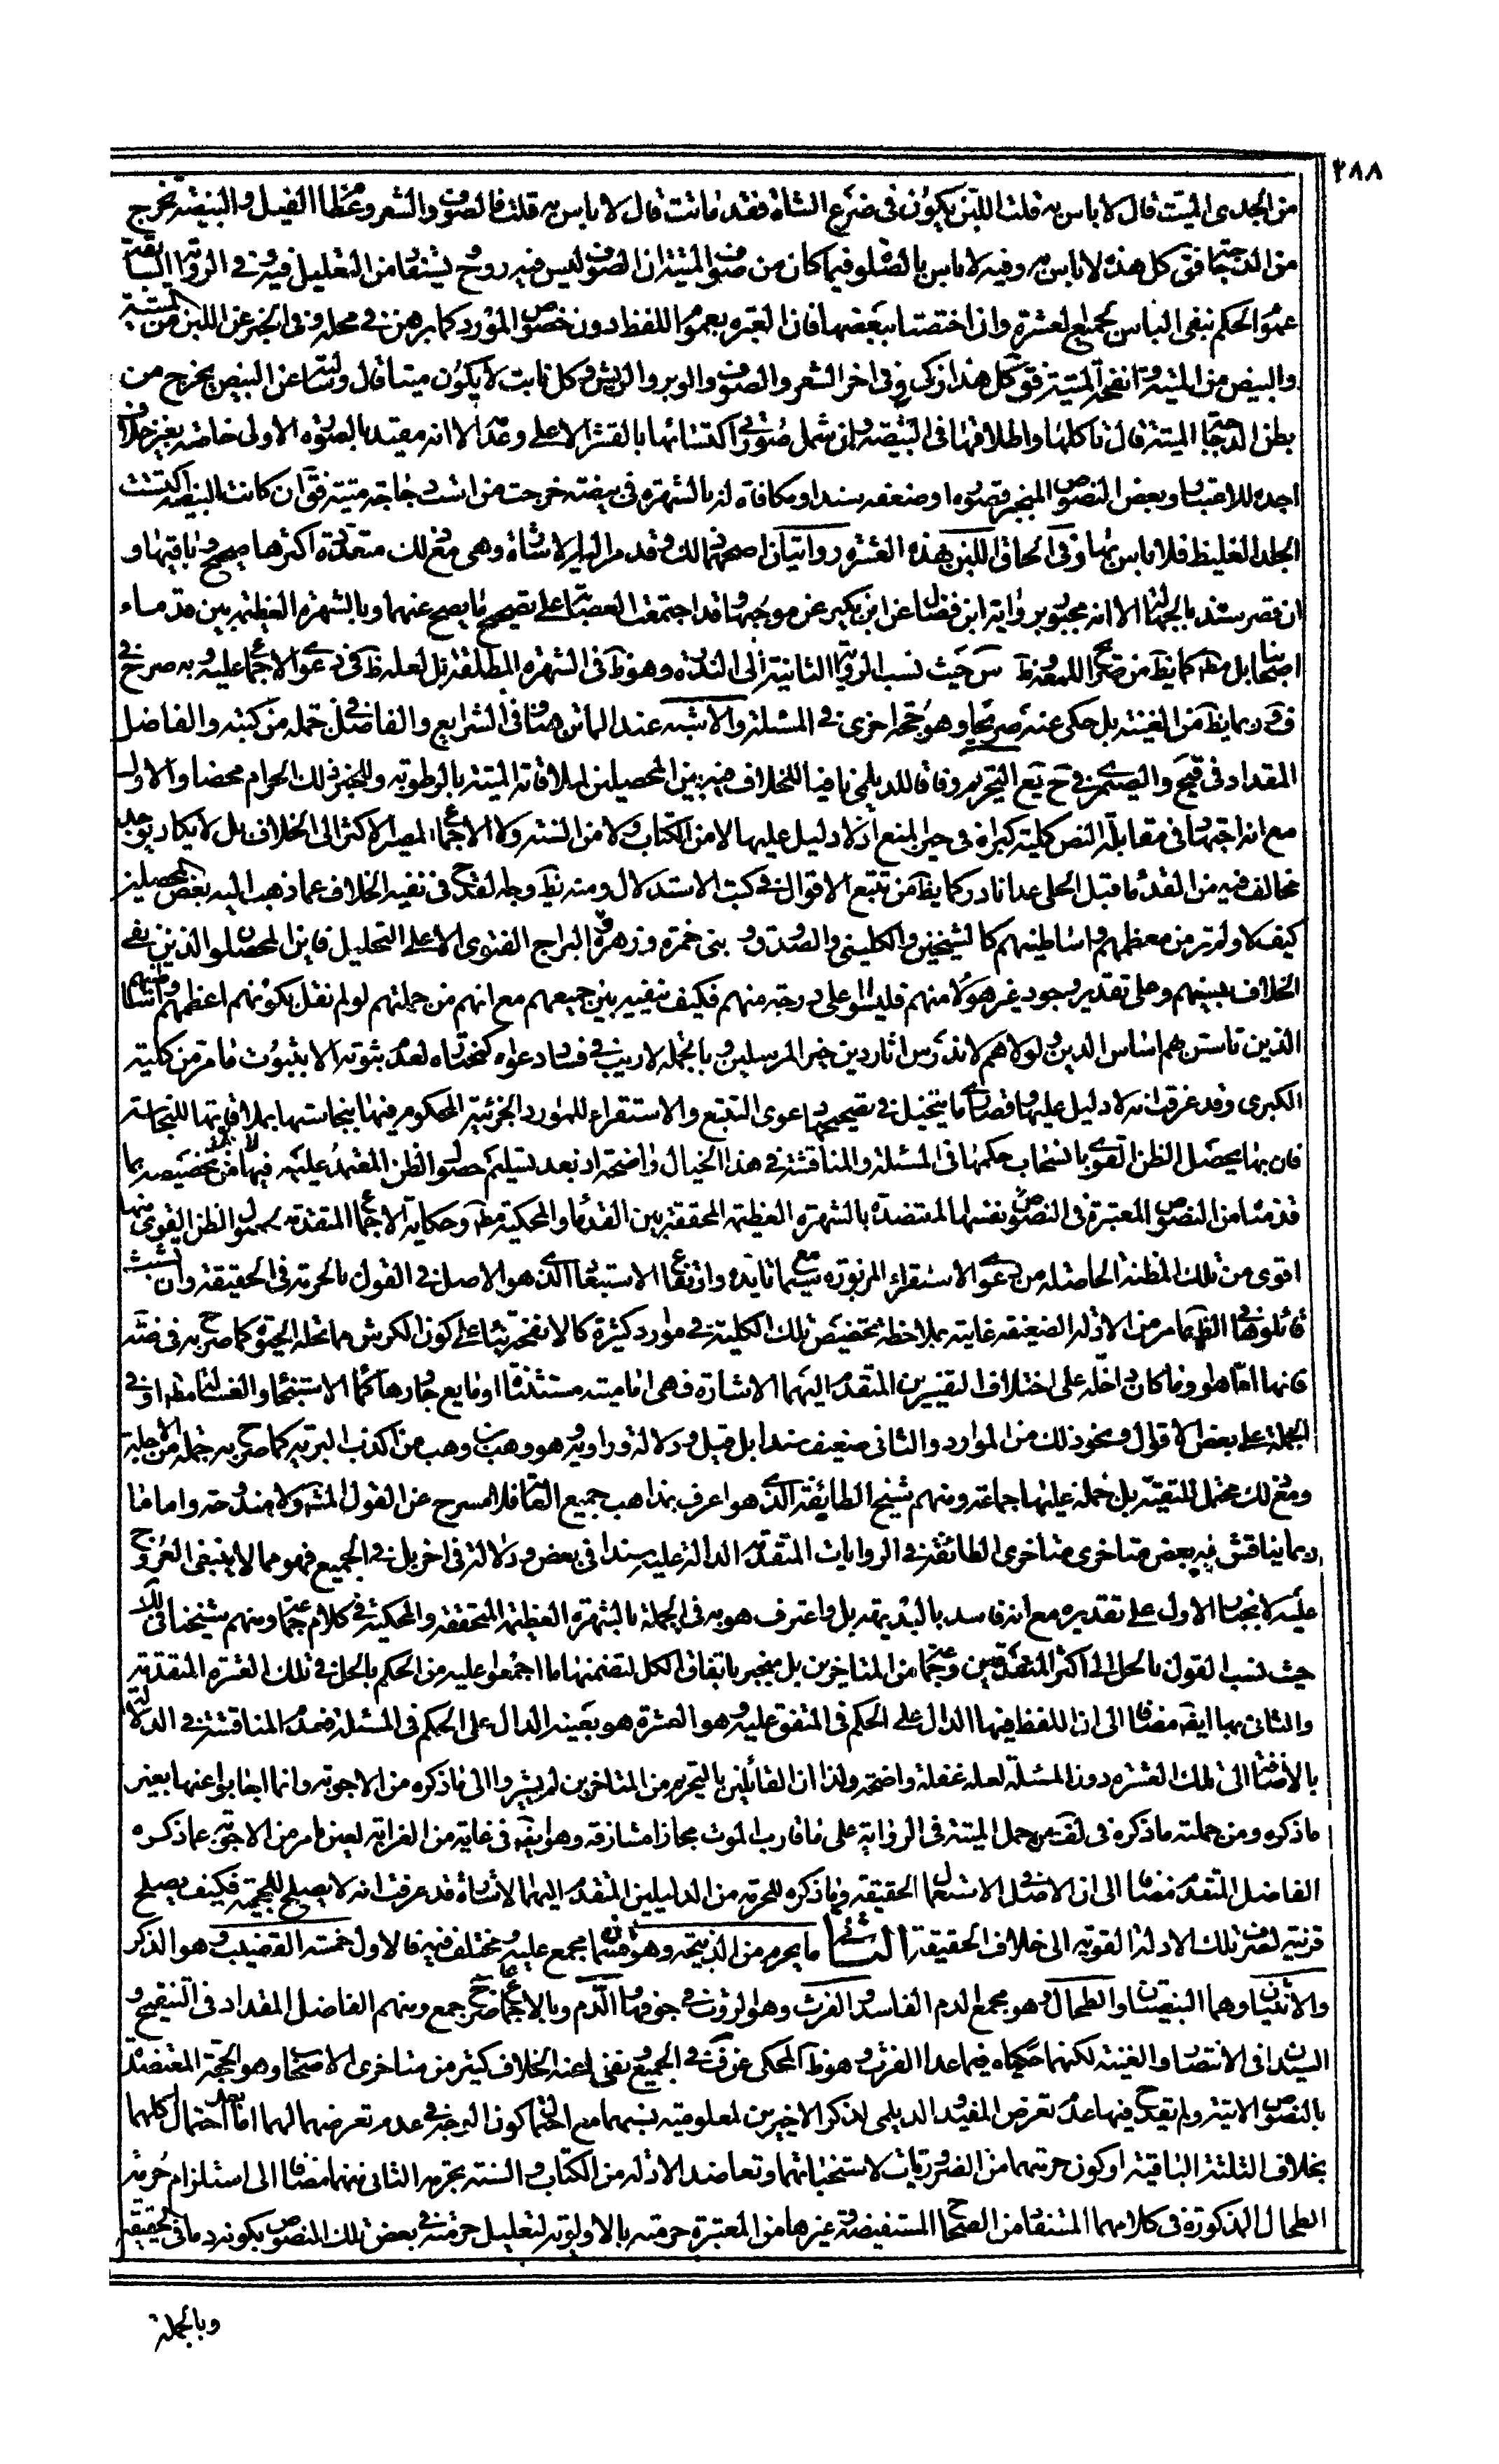 ٢٨٨
من الجدى الميت قال لا باس به قلت اللبن يكون فى ضرع الشاة فقد ماتت قال لا باس به قلت فالصوف والشعر وعظام الفيل والبيضة تخرج
من الدجاجة فق كل هذه لا باس به وفيه لا باس بالصلوة فيما كان من صوف الميتة ان الصوف ليس فيه روح يستفاد من التعليل فيه وفى الرواية السابقة
عموم الحكم بنفى الباس لجميع العشرة وان اختصتا ببعضها فان العبرة بعموم اللفظ دون خصوص المورد كما برهن فى محله وفى الخبر عن اللبن من الميتة
والبيض من الميتة وانفحة الميتة فق كل هذا زكى وفى اخر الشعر والصوف والوبر والريش وكل نابت لا يكون ميتا قال وسالته عن البيض يخرج من
بطن الدجاجة الميتة قال تاكلها واطلاقها فى البيضة وان شمل صورتى اكتسائها بالقشر الاعلى وعدمه الا انه مقيد بالصورة الاولى خاصة بغير خلاف
اجده للاعتبار وبعض النصوص المنجبر قصوره او ضعفه سندا ومكافاة له بالشهرة فى بيضة خرجت من است دجاجة ميتة فق ان كانت البيضة اكتست
الجلد الغليظ فلا باس بها وفى الحاق اللبن بهذه العشرة روايتان اصحهما ذلك وقد مر اليها الاشارة وهى مع ذلك متعددة اكثرها صحيح وباقيها و
ان قصر سند بالجهالة الا انه مجبور برواية ابن فضال عن ابن بكير عن موجبها وقد اجتمعت العصابة على تصحيح ما يصح عنهما وبالشهرة العظيمة بين قدماء
اصحابنا بل مط كما يظ من صريح اللمعة وظ س حيث نسب الرواية الثانية الى الندرة وهو ظ فى الشهرة المطلقة بل لعله ظ فى دعوى الاجماع عليه وبه صرح فى
ف وربما يظ من الغنية بل حكى عنه صريحا وهو حجة اخرى فى المسئلة والاشبه عند الماتن هنا وفى الشرايع والفاضل فى جملة من كتبه والفاضل
المقداد فى قيح والصيمرى فى ح يع التحريم وفاقا للديلمى نافيا للخلاف فيه بين المحصلين لملاقاته الميتة بالرطوبة وللخبر ذلك الحرام محضا والاول
مع انه اجتهاد فى مقابلة النص كلية كبراه فى حيز المنع اذ لا دليل عليها لا من الكتاب ولا من السنة ولا الاجماع لمصير الاكثر الى الخلاف بل لا يكاد يوجد
مخالف فيه من القدماء قبل الحلى عدا نادر كما يظ من تتبع الاقوال فى كتب الاستدلال ومنه يظ وجه القدح فى نفيه الخلاف عما ذهب اليه بعض المحصلين
كيف لا ولم تر من معظمهم واساطينهم كالشيخين والكلينى والصدوق وبنى حمزة وزهرة والبراج الفتوى الا على التحليل فاين المحصلون الذين نفى
الخلاف بينهم وعلى تقدير وجود غير هؤلاء منهم فليسوا على درجة منهم فكيف ينفيه بين جميعهم مع انهم من جملتهم لو لم نقل بكونهم اعظمهم واساطينهم
الذين تاسس بهم اساس الدين ولولاهم لاندرس اثار دين خير المرسلين وبالجملة لا ريب فى فساد دعواه كمختاره لعدم ثبوته الا بثبوت ما مر من كلية
الكبرى وقد عرفت انه لا دليل عليها وقصارى ما يتخيل فى تصحيحها دعوى التتبع والاستقراء للموارد الجزئية المحكوم فيها بنجاستها بملاقاتها للنجاسة
فان بها يحصل الظن القوى بانسحاب حكمها فى المسئلة والمناقشة فى هذا الخيال واضحة اذ بعد تسليم حصول الظن المعتمد عليه فيها لا بد من تخصيصه بما
قدمنا من النصوص المعتبرة فى النصوص نفسها المعتضدة بالشهرة العظيمة المحققة بين القدماء والمحكية مط وحكاية الاجماع المتقدمة لحصول الظن القوى منها
اقوى من تلك المظنة الحاصلة من دعوى الاستقراء المزبورة سيما مع تايده وارتفاع الاستبعاد الذى هو الاصل فى القول بالحرمة فى الحقيقة وان تشبث
قائلوها فى الظ بما مر من الادلة الضعيفة غايته بملاحظة تخصيص تلك الكلية فى موارد كثيرة كالانفحة بناء على كون الكرش مما تحله الحيوة كما صرح به فى ضة
فانها اما هو وما كان داخله على اختلاف التفسيرين المتقدم اليهما الاشارة فهى اما ميتة مستثناة او مايع جاورها كما الاستنجاء والغسالة مط او فى
الجملة على بعض الاقوال ونحو ذلك من الموارد والثانى ضعيف سندا بل قيل ودلالة وراويه هو وهب بن وهب من اكذب البرية كما صرح به جملة من الاجلة
ومع ذلك محتمل للتقية بل حمله عليها جماعة ومنهم شيخ الطائفة الذى هو اعرف بمذاهب جميع العامة فلا مسرح عن القول المشهور ولا مندوحة واما ما
ربما يناقش فيه بعض متاخرى متاخرى الطائفة فى الروايات المتقدمة الدالة عليه سندا فى بعض ودلالة فى اخر بل فى الجميع فهو مما لا ينبغى العروج
عليه لانجبار الاول على تقديره مع انه فاسد بالبديهة بل واعترف هو به فى الجملة بالشهرة العظيمة المتحققة والمحكية فى كلام جماعة ومنهم شيخنا فى لك
حيث نسب القول بالحل الى اكثر المتقدمين وجماعة من المتاخرين بل منجبر باتفاق الكل لتضمنها ما اجمعوا عليه من الحكم بالحل فى تلك العشرة المتقدمة
والثانى بها ايضا مضافا الى ان اللفظ فيها الدال على الحكم فى المتفق عليه وهو العشرة هو بعينه الدال على الحكم فى المسئلة فعدم المناقشة فى الدلالة
بالاضافة الى تلك العشرة دون المسئلة لعله غفلة واضحة ولذا ان القائلين بالتحريم من المتاخرين لم يشيروا الى ما ذكره من الاجوبة وانما اجابوا عنها بغير
ما ذكره ومن جملته ما ذكره فى لف من حمل الميتة فى الرواية على ما قارب الموت مجازا مشارفة وهو ايضا فى غاية من الغرابة لعين ما مر من الاجوبة عما ذكره
الفاضل المتقدم مضافا الى ان الاصل فى الاستعمال الحقيقة وما ذكره للحرمة من الدليلين المتقدم اليهما الاشارة قد عرفت انه لا يصلح للحجية فكيف يصلح
قرينة لصرف تلك الادلة القوية الى خلاف الحقيقة الثانى ما يحرم من الذبيحة وهو قسمان مجمع عليه ومختلف فيه فالاول خمسة القضيب وهو الذكر
والانثيان وهما البيضتان والطحال وهو مجمع الدم الفاسد والفرث وهو الروث فى جوفها والدم وبالاجماع صرح جمع ومنهم الفاضل المقداد فى التنقيح و
السيدان فى الانتصار والغنية لكنهما حكياه فيما عدا الفرث وهو ظ المحكى عن ف فى الجميع ونفى عنه الخلاف كثير من متاخرى الاصحاب وهو الحجة المعتضدة
بالنصوص الاتية ولم يقدح فيها عدم تعرض المفيد والديلمى لذكر الاخيرين لمعلومية نسبهما مع احتمال كون الوجه فى عدم تعرضهما لهما اما بعد احتمال اكلهما
بخلاف الثلثة الباقية او كون حرمتهما من الضروريات لاستخباثهما وتعاضد الادلة من الكتاب والسنة بتحريم الثانى منهما مضافا الى استلزام حرمة
الطحال المذكورة فى كلامهما المستفاد من الصحاح المستفيضة وغيرها من المعتبرة حرمته بالاولوية لتعليل حرمته فى بعض تلك النصوص بكونه دما فى الحقيقة
وبالجملة